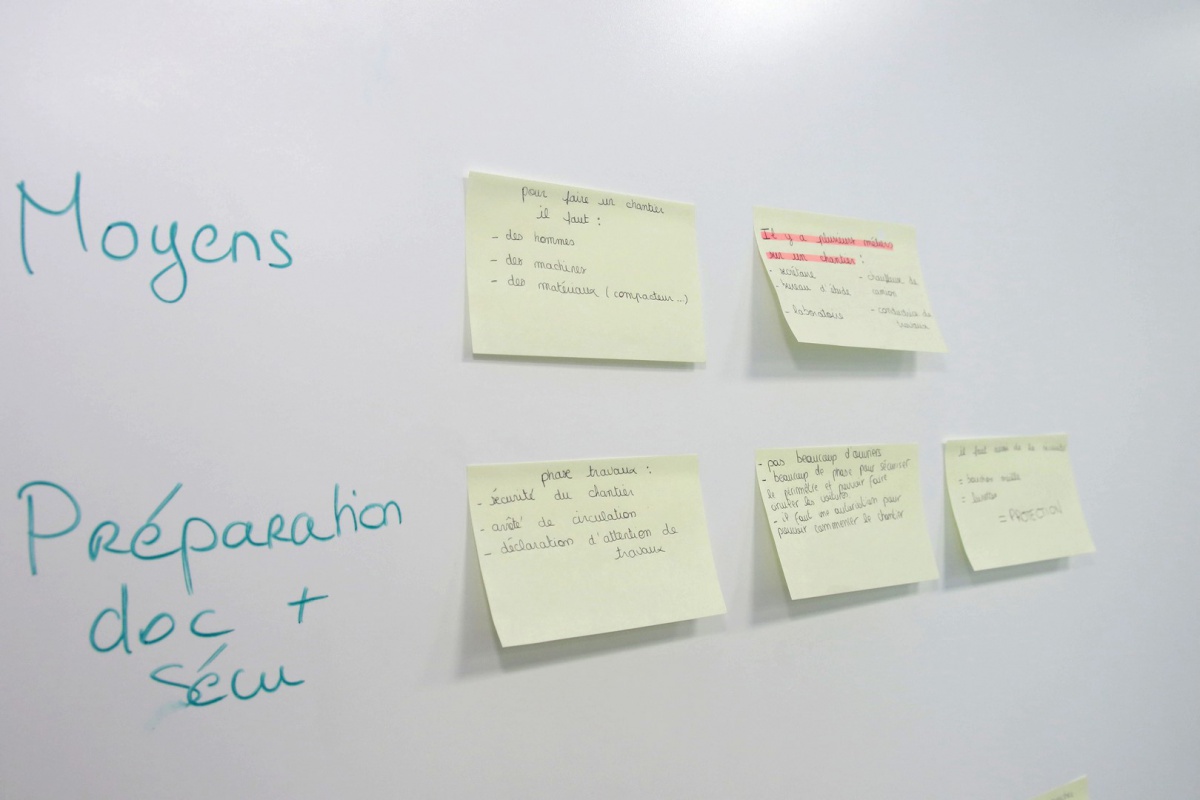 Moyens
pour faire un chantier
il faut :
- des hommes
- des machines
- des matériaux (compacteur...)
Il y a plusieurs métiers
sur un chantier :
- secrétaire
- bureau d'étude
- laboratoire
- chauffeur de
camion
- conducteur de
travaux
Préparation
doc +
sécu
phase travaux :
- sécurité du chantier
- arrêté de circulation
- déclaration d'attention de
travaux
- pas beaucoup d'ouvriers
- beaucoup de phase pour sécuriser
le périmètre et pouvoir faire
les voitures
- il faut une autorisation pour
pouvoir commencer le chantier
il faut de la
=
=
= PROTECTION